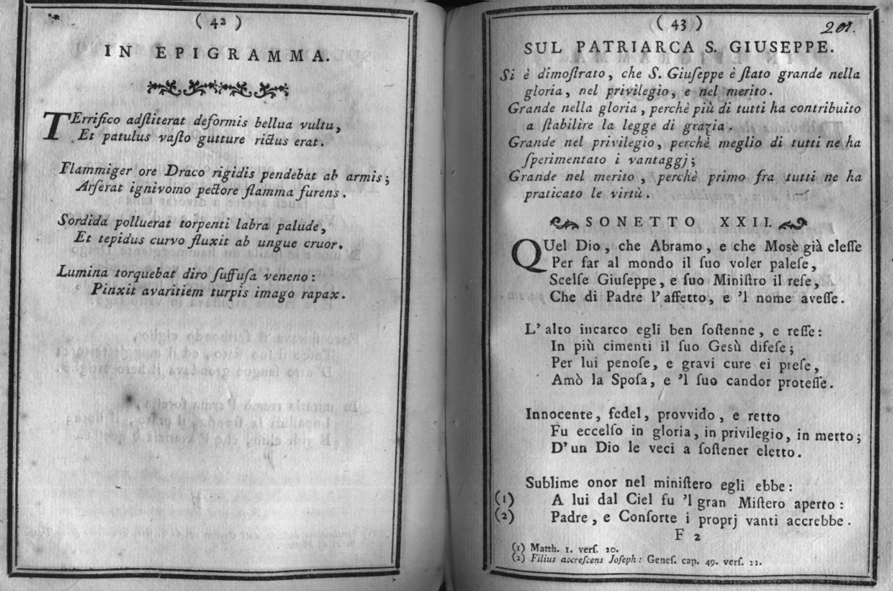 ( 42 )
IN EPIGRAMMA.
TErrifico adſtiterat deformis bellua vultu,
Et patulus vaſto gutture rictus erat.
Flammiger ore Draco rigidis pendebat ab armis;
Arſerat ignivomo pectore flamma furens.
Sordida polluerat torpenti labra palude,
Et tepidus curvo fluxit ab ungue cruor.
Lumina torquebat diro ſuffuſa veneno:
Pinxit avaritiem turpis imago rapax.
( 43 )
201.
SUL PATRIARCA S. GIUSEPPE.
Si è dimoſtrato, che S. Giuſeppe è ſtato grande nella
gloria, nel privilegio, e nel merito.
Grande nella gloria, perchè più di tutti ha contribuito
a ſtabilire la legge di grazia.
Grande nel privilegio, perchè meglio di tutti ne ha
ſperimentato i vantaggj;
Grande nel merito, perchè primo fra tutti ne ha
praticato le virtù.
SONETTO XXII.
QUel Dio, che Abramo, e che Mosè già eleſſe
Per far al mondo il ſuo voler paleſe,
Scelſe Giuſeppe, e ſuo Miniſtro il reſe,
Che di Padre l'affetto, e 'l nome aveſſe.
L'alto incarco egli ben ſoſtenne, e reſſe:
In più cimenti il ſuo Gesù difeſe;
Per lui penoſe, e gravi cure ei preſe,
Amò la Spoſa, e 'l ſuo candor proteſſe.
Innocente, fedel, provvido, e retto
Fu eccelſo in gloria, in privilegio, in merto;
D'un Dio le veci a ſoſtener eletto.
Sublime onor nel miniſtero egli ebbe:
(1) A lui dal Ciel fu 'l gran Miſtero aperto:
(2) Padre, e Conſorte i proprj vanti accrebbe.
F 2
(1) Matth. 1. verſ. 20.
(2) Filius accreſcens Joſeph: Geneſ. cap. 49. verſ. 22.